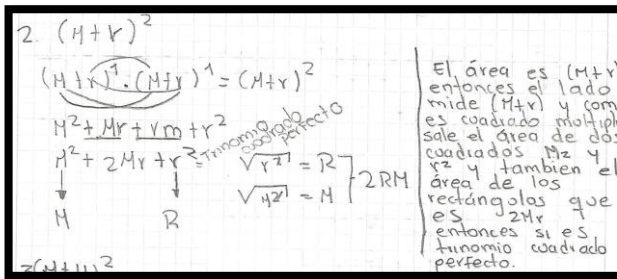 2. (M+r)²
(M+r)¹·(M+r)¹=(M+r)²
M²+Mr+rm+r²
M²+2Mr+r²=Trinomio
cuadrado
perfecto
√r² = R
√M² = M
2RM
M R
El área es (M+r)
entonces el lado
mide (M+r) y com
es cuadrado multipl
sale el área de dos
cuadrados M2 y
r² y tambien el
área de los
rectángulas que
es 2Mr
entonces si es
trinomio cuadrado
perfecto.
3(M+11)²